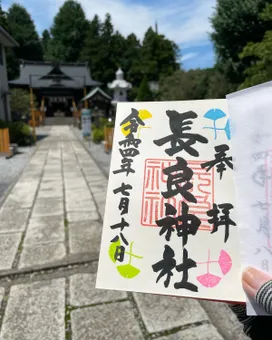 奉拝
長良神社
令和四年 七月十八日